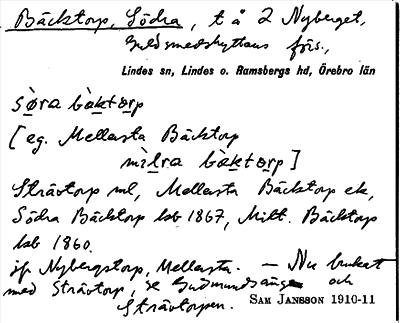 Bäcktorp, Södra, t å 2 Nyberget,
Guldsmedshyttans förs.,
Lindes sn, Lindes o. Ramsbergs hd, Örebro län
sö̀ra bàktorp
[eg. Mellersta Bäcktorp
mìlra bàktorp]
Stråtorp ml, Mellersta Bäcktorp ek,
Södra Bäcktorp lsb 1867, Mitt. Bäcktorp
lsb 1860.
jfr Nybergstorp, Mellersta. — Nu brukat
med Stråtorp, se Gudmundsänge och
Stråtorpen. SAM JANSSON 1910-11